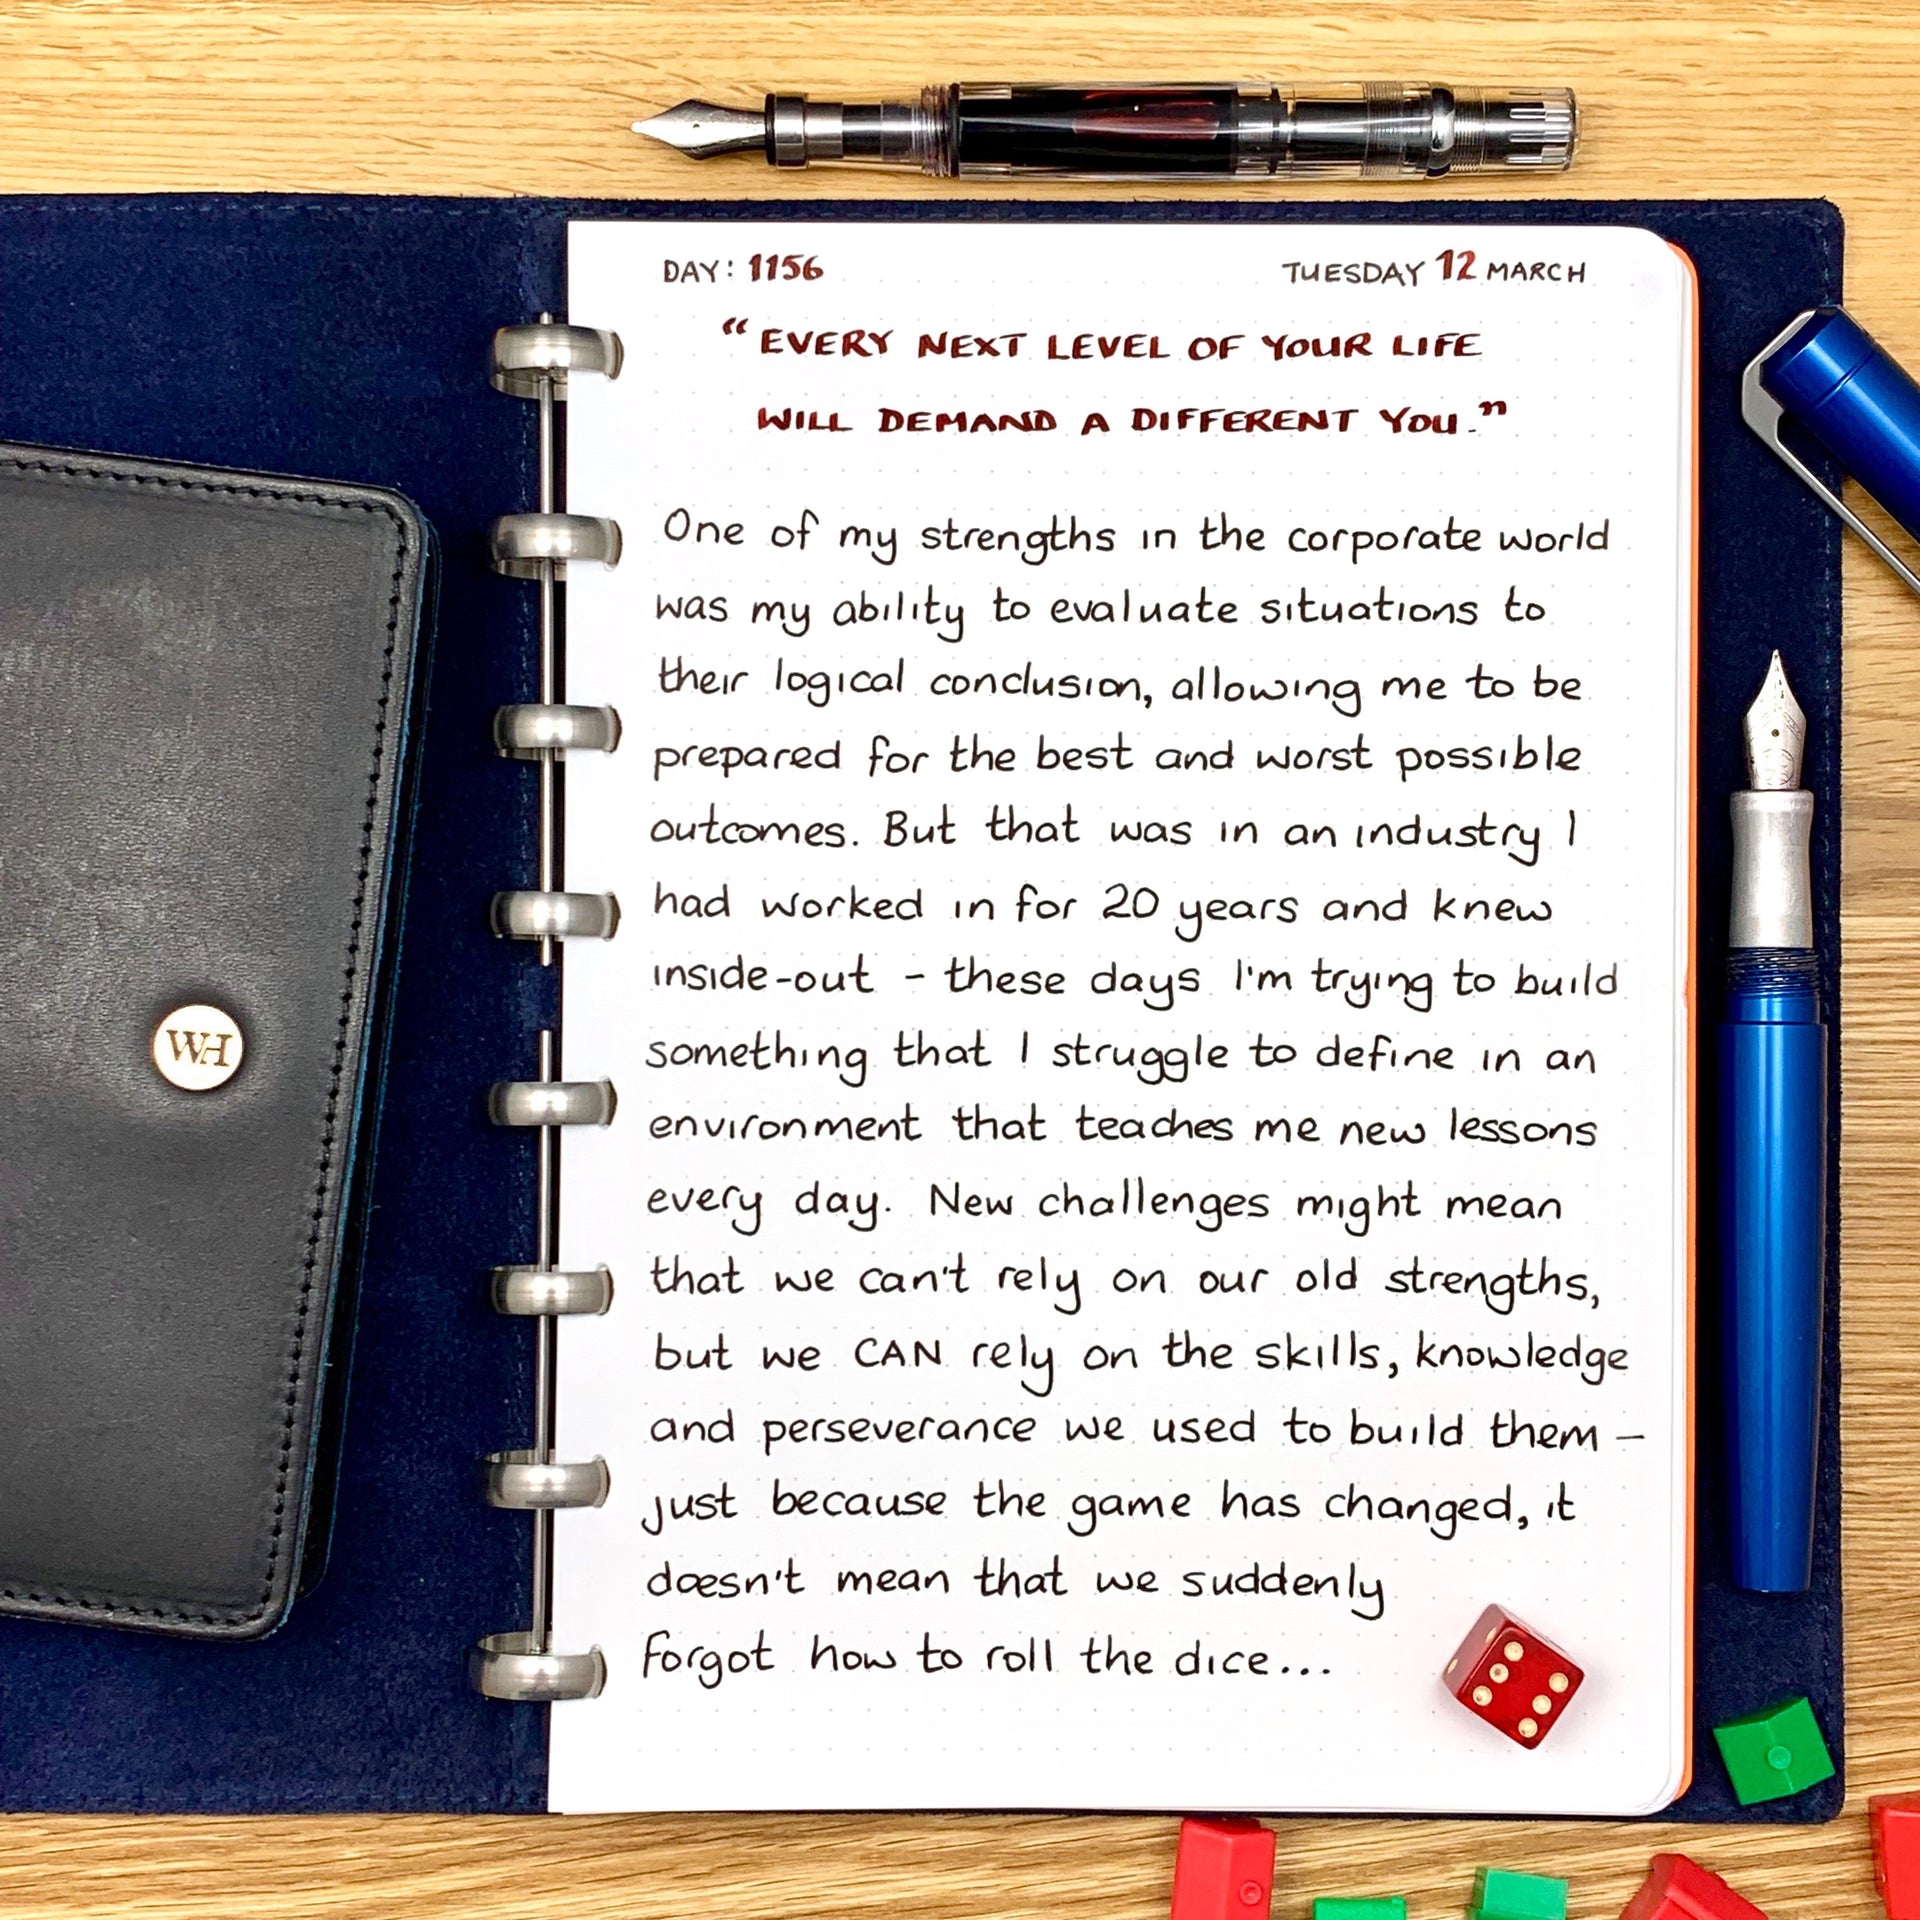 DAY: 1156 TUESDAY 12 MARCH
“EVERY NEXT LEVEL OF YOUR LIFE
WILL DEMAND A DIFFERENT YOU.”
One of my strengths in the corporate world
was my ability to evaluate situations to
their logical conclusion, allowing me to be
prepared for the best and worst possible
outcomes. But that was in an industry I
had worked in for 20 years and knew
inside-out - these days I'm trying to build
something that I struggle to define in an
environment that teaches me new lessons
every day. New challenges might mean
that we can't rely on our old strengths,
but we CAN rely on the skills, knowledge
and perseverance we used to build them -
just because the game has changed, it
doesn't mean that we suddenly
forgot how to roll the dice...
WH